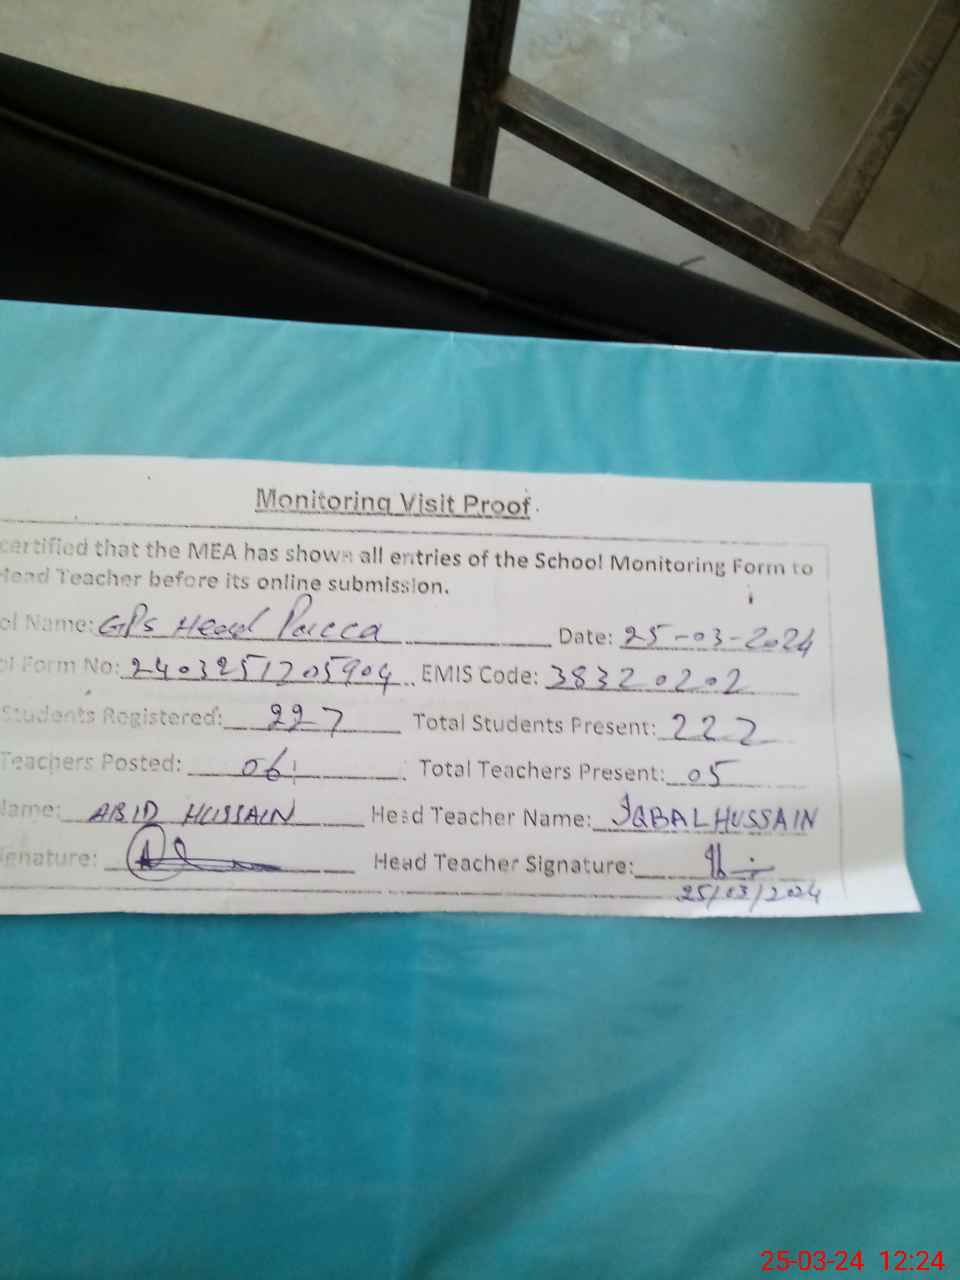 Monitoring Visit Proof
certified that the MEA has shown all entries of the School Monitoring Form to
Head Teacher before its online submission.
ol Name: GPS Head Pacca Date: 25-03-2024
ol Form No: 2403251205904 EMIS Code: 38320202
Students Registered: 227 Total Students Present: 222
Teachers Posted: 06 Total Teachers Present: 05
Name: ABID HUSSAIN Head Teacher Name: IQBAL HUSSAIN
ignature: Head Teacher Signature:
25/03/2024
25-03-24 12:24